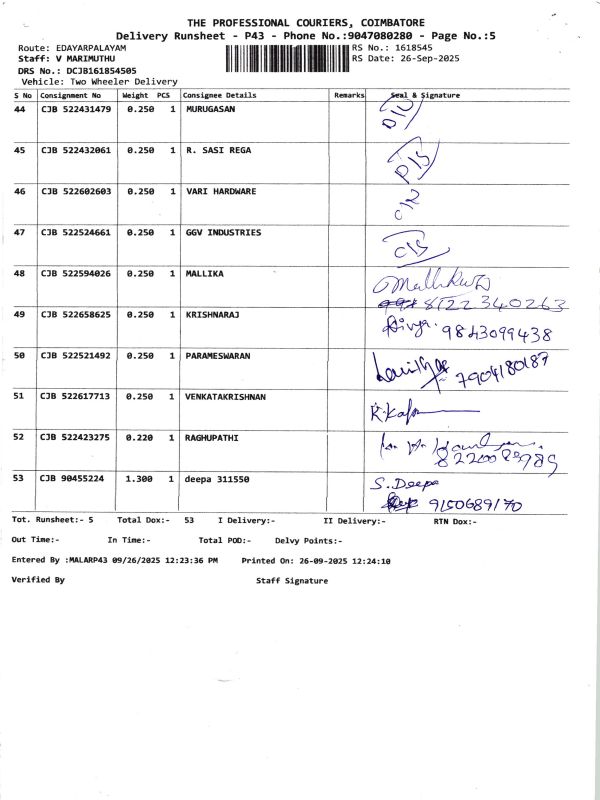 THE PROFESSIONAL COURIERS, COIMBATORE
Delivery Runsheet - P43 - Phone No.:9047080280 - Page No.:5
Route: EDAYARPALAYAM RS No.: 1618545
Staff: V MARIMUTHU RS Date: 26-Sep-2025
DRS No.: DCJB161854505
Vehicle: Two Wheeler Delivery
S No Consignment No Weight PCS Consignee Details Remarks Seal & Signature
44 CJB 522431479 0.250 1 MURUGASAN
45 CJB 522432061 0.250 1 R. SASI REGA
46 CJB 522602603 0.250 1 VARI HARDWARE
47 CJB 522524661 0.250 1 GGV INDUSTRIES
48 CJB 522594026 0.250 1 MALLIKA
8122340263
49 CJB 522658625 0.250 1 KRISHNARAJ Divya. 9843099438
50 CJB 522521492 0.250 1 PARAMESWARAN 7904180187
51 CJB 522617713 0.250 1 VENKATAKRISHNAN
52 CJB 522423275 0.220 1 RAGHUPATHI
53 CJB 90455224 1.300 1 deepa 311550 S. Deepa
9150689170
Tot. Runsheet:- 5 Total Dox:- 53 I Delivery:- II Delivery:- RTN Dox:-
Out Time:- In Time:- Total POD:- Delvy Points:-
Entered By :MALARP43 09/26/2025 12:23:36 PM Printed On: 26-09-2025 12:24:10
Verified By Staff Signature